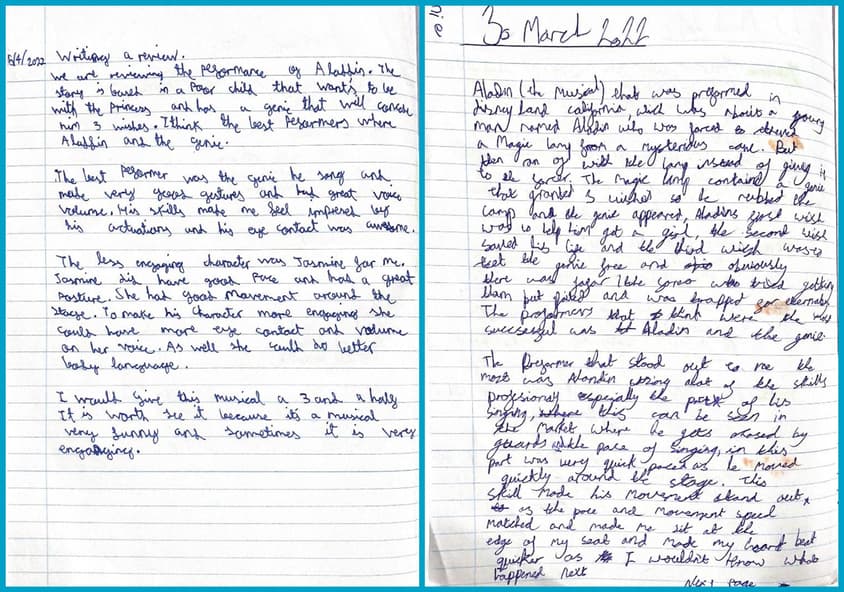 6/4/2022 Writing a review.
We are reviewing the performance of Aladdin. The
story is based in a poor child that wants to be
with the Princess and has a genie that will
him 3 wishes. I think the best performers where
Aladdin and the genie.
The best performer was the genie he song and
made very good gestures and had great voice
volume. His skills make me feel impresed by
his actuations and his eye contact was awesome.
The less engaging character was Jasmine for me.
Jasmine did have good Pace and had a great
Posture. She had good Movement around the
stage. To make his character more engaging she
could have more eye contact and volume
on her voice. As well she could do better
body language.
I would give this musical a 3 and a half
It is worth see it because its a musical
very funny and sometimes it is very
engaging.
30 March 2022
Aladin (the Musical) that was preformed in
disney land california, wich was about a young
man named Aladin who was forced to
a Magic lamp from a mysterious cave. But
then ran of with the lamp instead of giving it
to the The magic lamp contained a genie
that granted 3 wishes so he rubbed the
and the genie appeared, Aladins first wish
was to help him get a girl, the second wish
saved his life and the third wish was to
set the genie free and obviously
there was Jafar who tried getting
them but failed and was trapped for eternaty
The preformers that I think were the most
succsessful was Aladin and the genie.
The Preformer that stood out to me the
most was using alot of the skills
profesionaly especially the of his
singing, this can be seen in
the Market where he gets chased by
guards the pace of singing, in this
part was very quick paced as he moved
quickly around the stage. This
skill made his movement stand out
as the pace and movement speed
matched and made me sit at the
edge of my seat and made my heart beat
quicker as I wouldn't know whats
happened next
Next Page